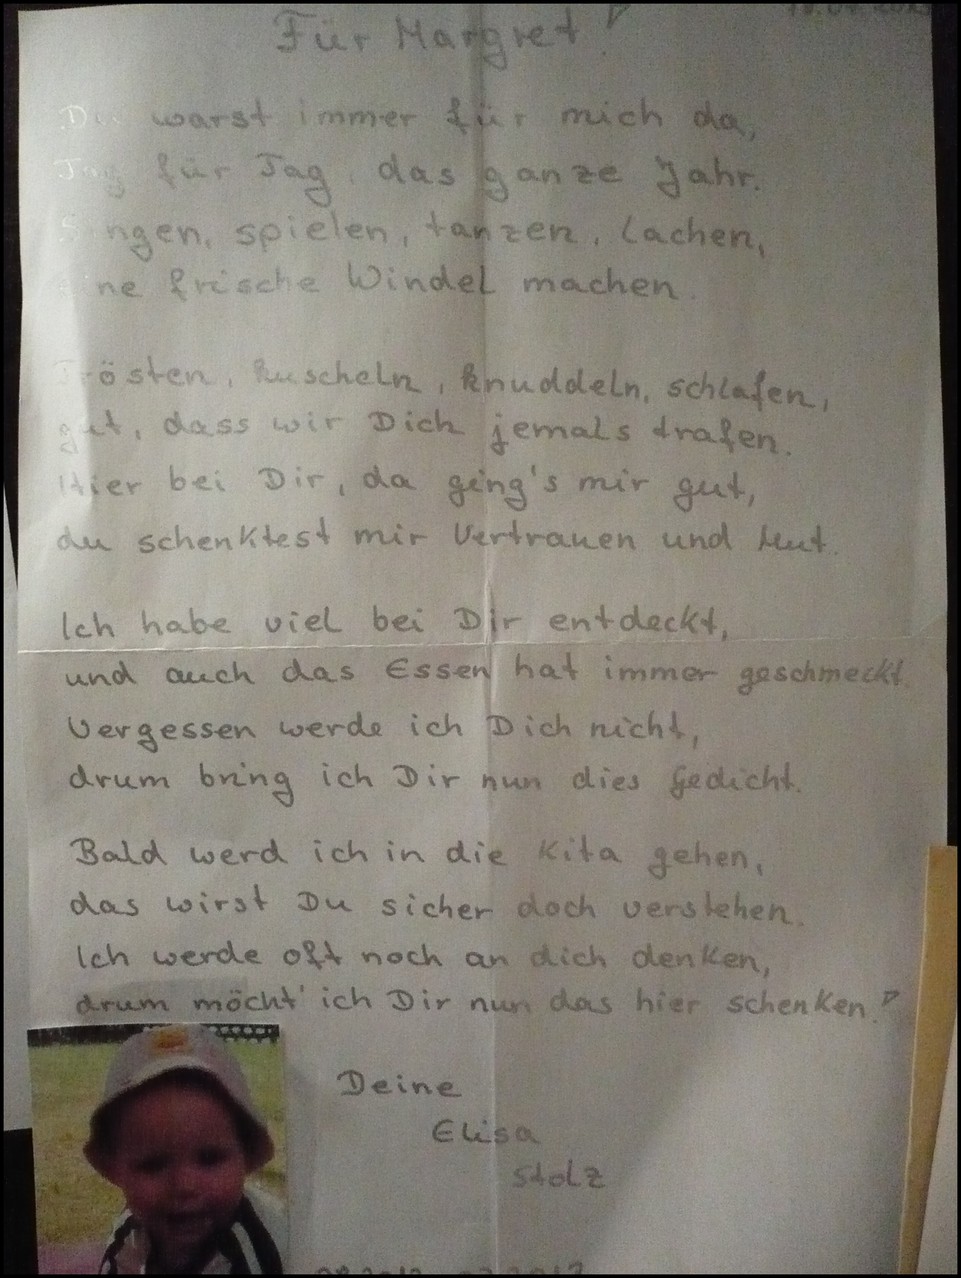 Für Margret!
Du warst immer für mich da,
Tag für Tag, das ganze Jahr.
Singen, spielen, tanzen, lachen,
eine frische Windel machen.
Trösten, kuscheln, knuddeln, schlafen,
gut, dass wir Dich jemals trafen.
Hier bei Dir, da ging's mir gut,
du schenktest mir Vertrauen und Mut.
Ich habe viel bei Dir entdeckt,
und auch das Essen hat immer geschmeckt.
Vergessen werde ich Dich nicht,
drum bring ich Dir nun dies Gedicht.
Bald werd ich in die Kita gehen,
das wirst Du sicher doch verstehen.
Ich werde oft noch an dich denken,
drum möcht' ich Dir nun das hier schenken!
Deine
Elisa
Stolz